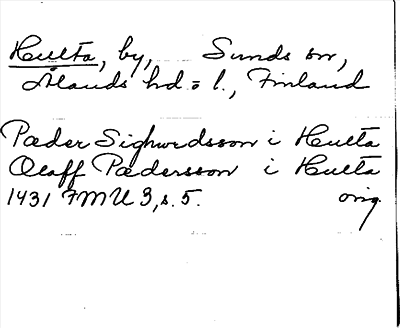 Hulta, by, Sunds sn,
Ålands hd = l., Finland
Pæder Sighwrdsson i Hulta
Olaff Pædersson i Hulta
1431 FMU 3, s. 5. orig.